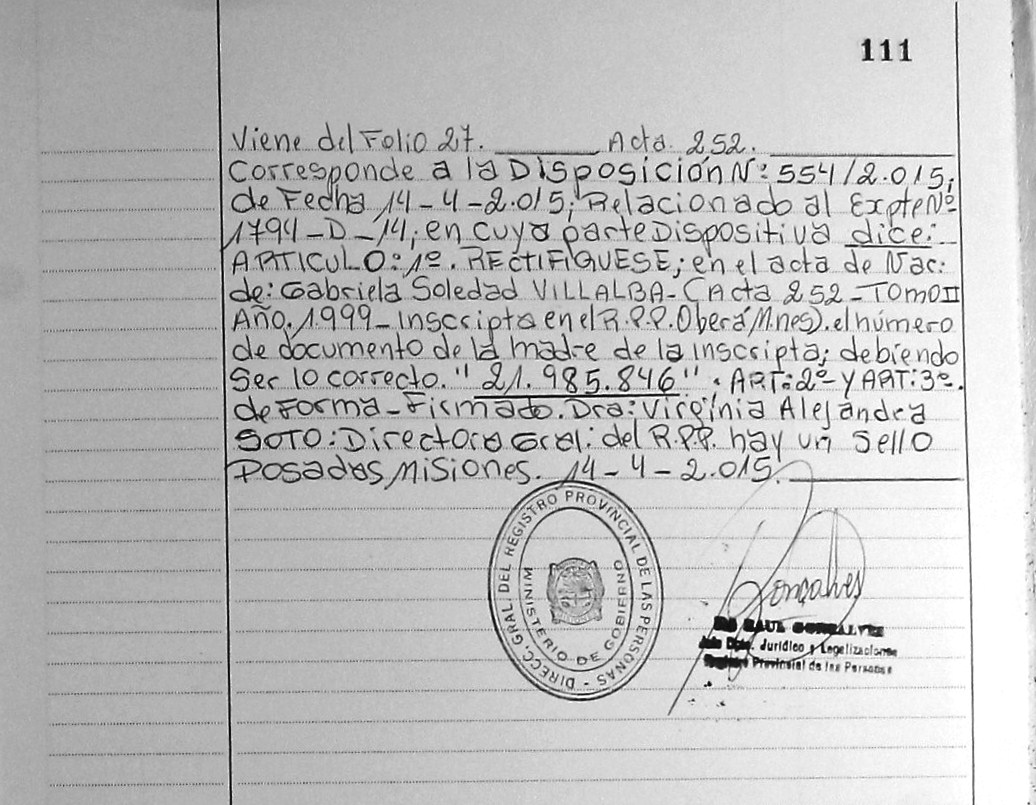 111
Viene del Folio 27. Acta 252.
Corresponde a la Disposición Nº 554/2.015;
de Fecha 14-4-2.015; Relacionado al Expte Nº
1794-D-14; en cuya parte Dispositiva dice:
ARTICULO: 1º. RECTIFIQUESE; en el acta de Nac:
de: Gabriela Soledad VILLALBA-(Acta 252-TOMO II
Año. 1.999-inscripta en el R.P.P. Oberá M.nes). el número
de documento de la madre de la inscripta; debiendo
Ser lo correcto. "21.985.846". ART: 2º Y ART: 3º.
de Forma-Firmado. Dra: Virginia Alejandra
SOTO: Directora Gral: del R.P.P. hay un sello
Posadas, Misiones. 14-4-2.015.
DIRECC. GRAL. DEL REGISTRO PROVINCIAL DE LAS PERSONAS -
MINISTERIO DE GOBIERNO
Gonsalves
RAUL
Jurídico y Legalizaciones
Provincial de las Personas